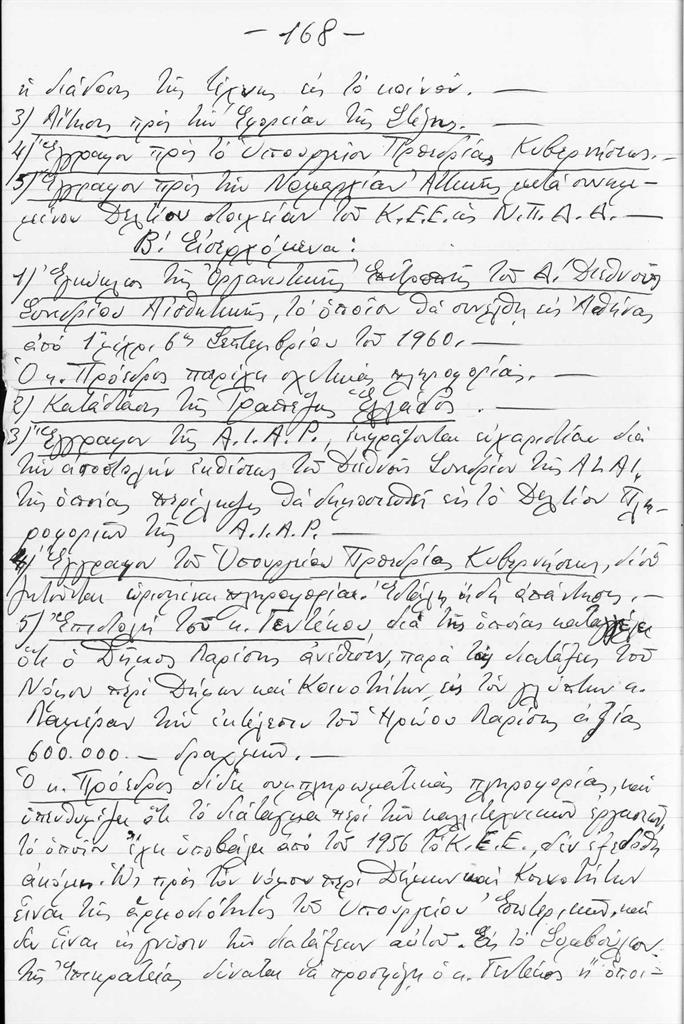 — 168 —
ἡ διάδοσις τῆς τέχνης εἰς τὸ κοινόν. —
3) Αἴτησις πρὸς τὴν Ἐφορείαν τῆς Στέγης. —
4) Ἔγγραφον πρὸς τὸ Ὑπουργεῖον Προεδρίας Κυβερνήσεως. —
5) Ἔγγραφον πρὸς τὴν Νομαρχίαν Ἀττικῆς μετὰ συνημ-
μένου Δελτίου στοιχείων τοῦ Κ.Ε.Ε. ὡς Ν.Π.Δ.Δ. —
Β! Εἰσερχόμενα:
1) Ἐγκύκλιος τῆς Ὀργανωτικῆς Ἐπιτροπῆς τοῦ Δ. Διεθνοῦς
Συνεδρίου Αἰσθητικῆς, τὸ ὁποῖον θὰ συνέλθῃ εἰς Ἀθήνας
ἀπὸ 1 μέχρι 6ης Σεπτεμβρίου τοῦ 1960. —
Ὁ κ. Πρόεδρος παρέχει σχετικὰς πληροφορίας. —
2) Κατάστασις τῆς Τραπέζης Ἑλλάδος. —
3) Ἔγγραφον τῆς A.I.A.P., ἐκφράζονται εὐχαριστίαι διὰ
τὴν ἀποστολὴν ἐκθέσεως τοῦ Διεθνοῦς Συνεδρίου τῆς
τῆς ὁποίας περίληψις θὰ δημοσιευθῇ εἰς τὸ Δελτίον Πλη-
ροφοριῶν τῆς A.I.A.P. —
4) Ἔγγραφον τοῦ Ὑπουργείου Προεδρίας Κυβερνήσεως, δι' οὗ
ζητοῦνται ὡρισμέναι πληροφορίαι. Ἐστάλη ἤδη ἀπάντησις. —
5) Ἐπιστολὴ τοῦ κ. Γεντέκου, διὰ τῆς ὁποίας καταγγέλει
ὅτι ὁ Δῆμος Λαρίσης ἀνέθεσεν, παρὰ τὰς διατάξεις τοῦ
Νόμου περὶ Δήμων καὶ Κοινοτήτων, εἰς τὸν γλύπτην κ.
Λαμέραν τὴν ἐκτέλεσιν τοῦ Ἡρώου Λαρίσης ἀξίας
600.000. — δραχμῶν. —
Ὁ κ. Πρόεδρος δίδει συμπληρωματικὰς πληροφορίας, καὶ
ὑπενθυμίζει ὅτι τὸ διάταγμα περὶ τῶν καλλιτεχνικῶν ἐργασιῶν,
τὸ ὁποῖον ἔχει ὑποβάλει ἀπὸ τοῦ 1956 τὸ Κ.Ε.Ε., δὲν ἐξεδόθη
ἀκόμη. Ὡς πρὸς τὸν νόμον περὶ Δήμων καὶ Κοινοτήτων
εἶναι τῆς ἁρμοδιότητος τοῦ Ὑπουργείου Ἐσωτερικῶν, καὶ
δὲν εἶναι εἰς γνῶσιν τῶν διατάξεων αὐτοῦ. Εἰς τὸ Συμβούλιον
τῆς Ἐπικρατείας δύναται νὰ προσφύγῃ ὁ κ. Γεντέκος ἢ ὁποι-